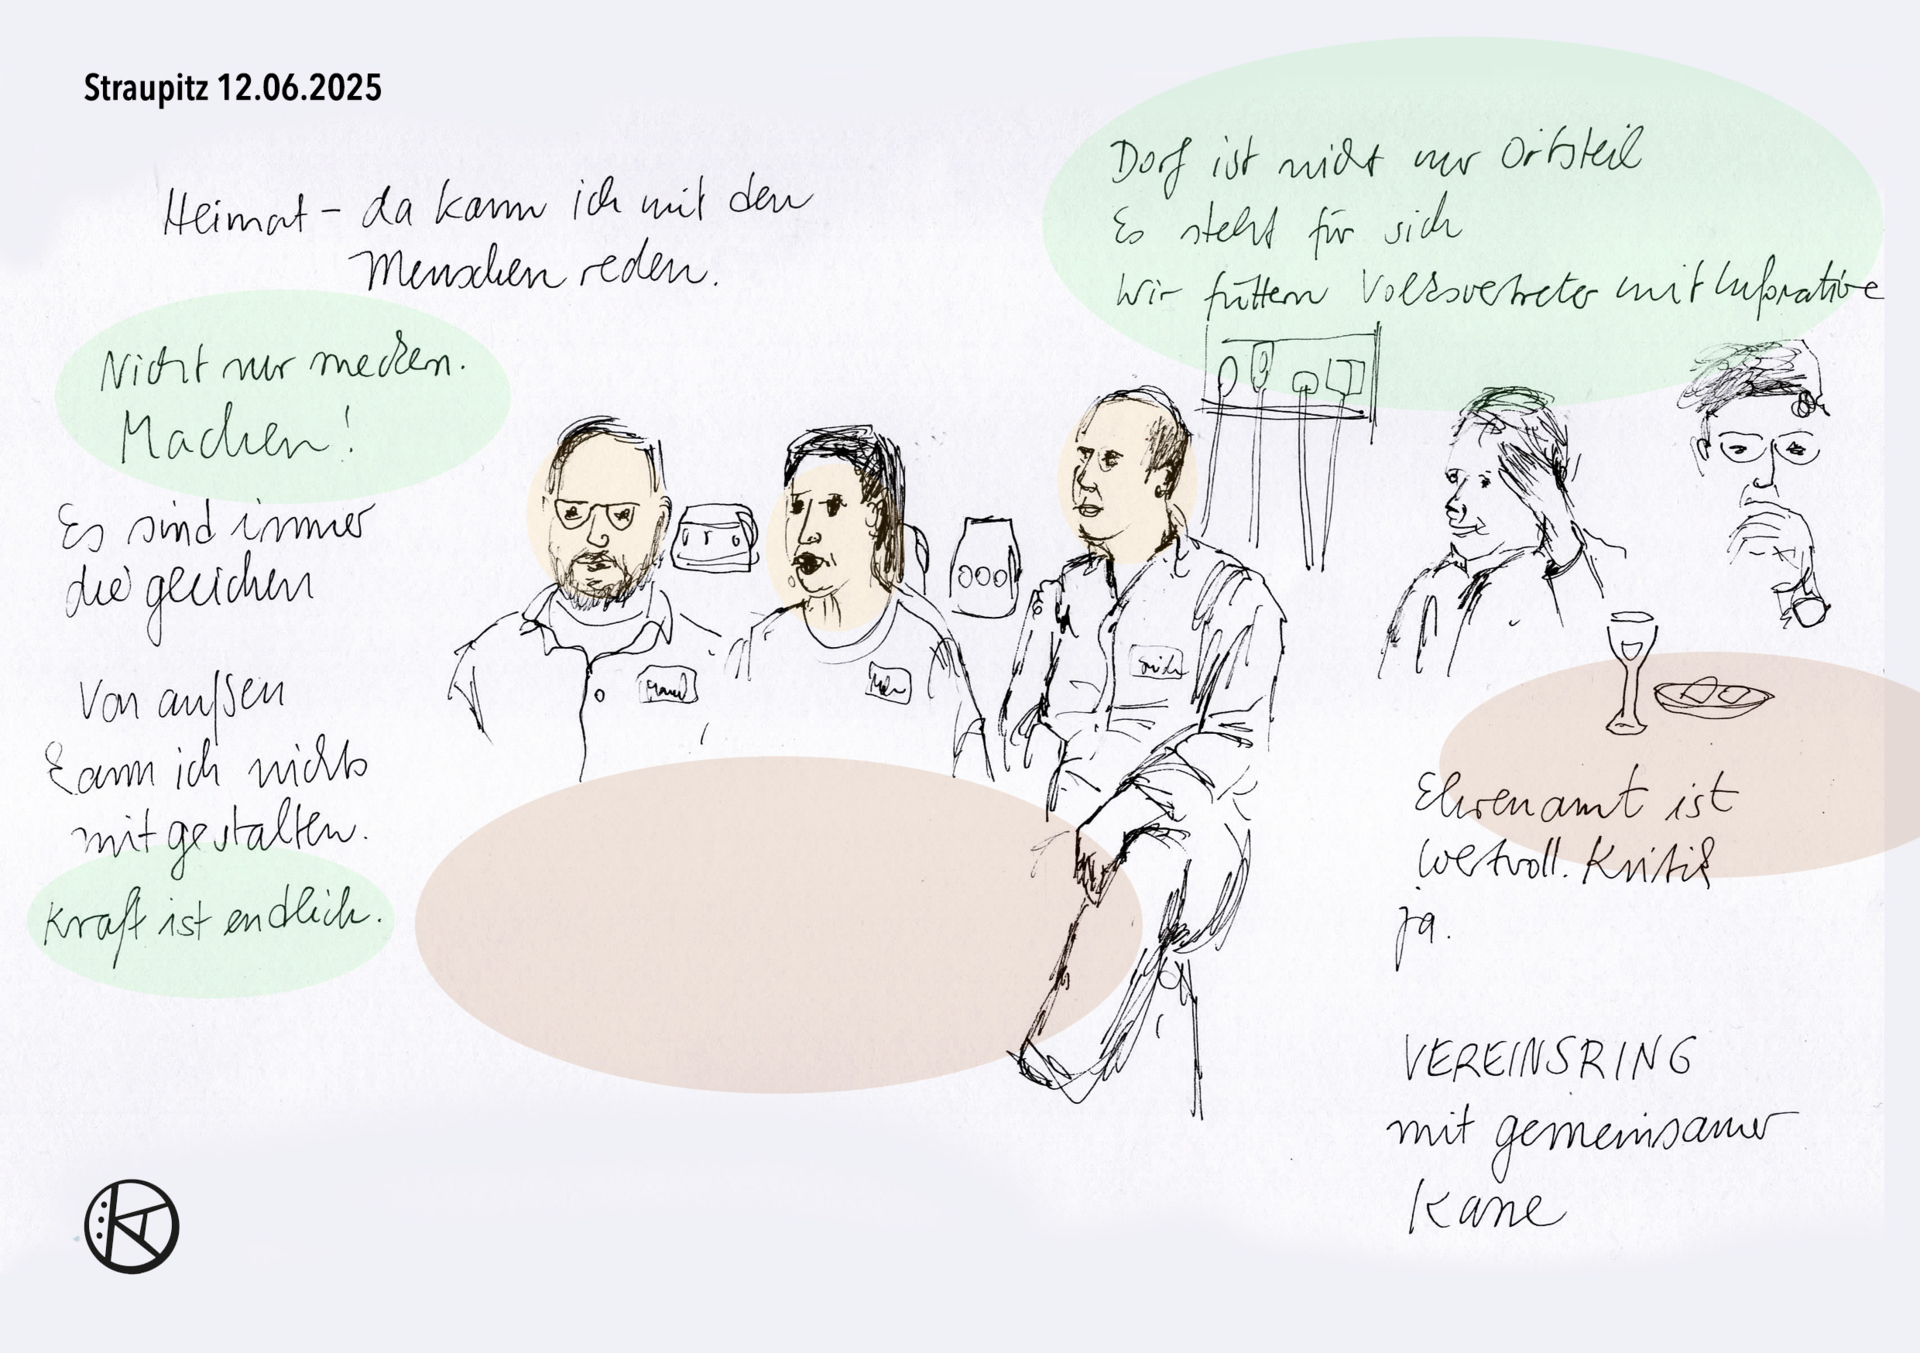 Straupitz 12.06.2025
Heimat – da kann ich mit den
Menschen reden.
Dorf ist nicht nur Ortsteil
Es steht für sich
Wir füttern Volksvertreter mit
Nicht nur meckern.
Machen!
Es sind immer
die gleichen
Von außen
kann ich nichts
mitgestalten.
Kraft ist endlich.
Ehrenamt ist
wertvoll. Kritik
ja.
VEREINSRING
mit gemeinsamer